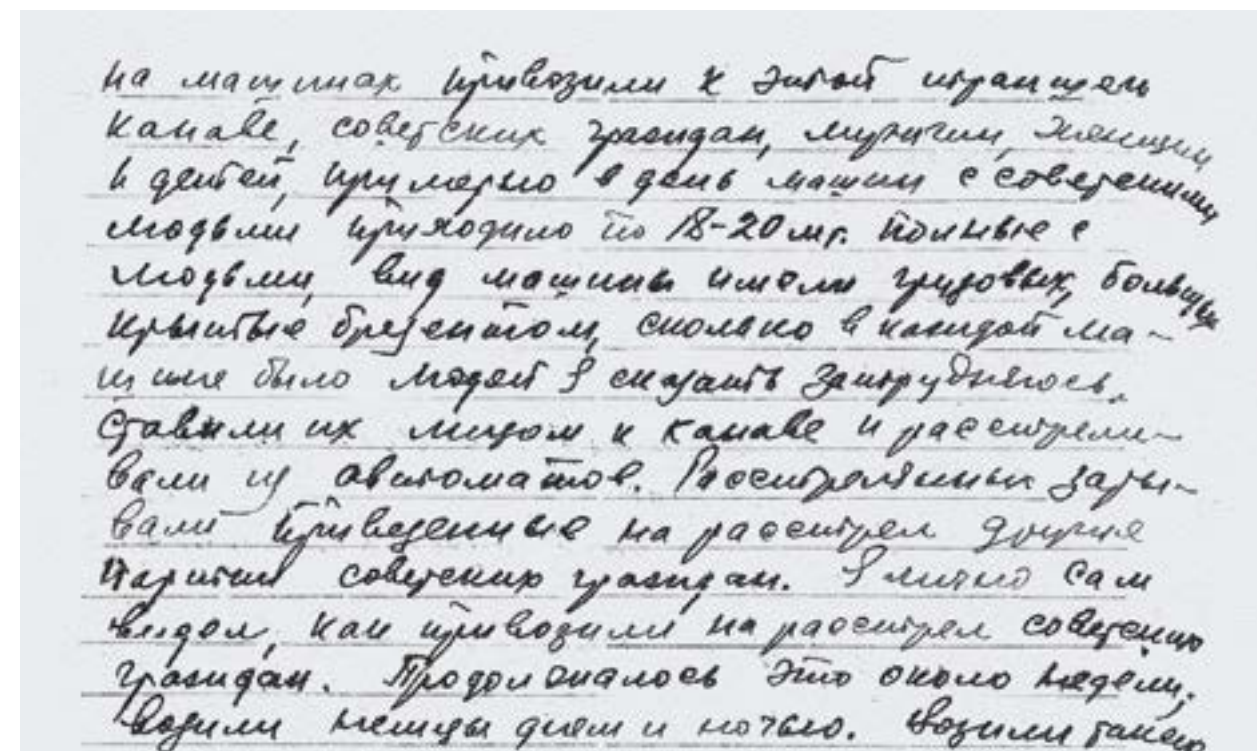 на машинах привозили к этой траншеи
канаве, советских граждан, мужчин, женщин
и детей, примерно в день машин с советскими
людьми приходило по 18-20 шт. полные с
людьми, вид машины имели грузовых, большие
крытые брезентом, сколько в каждой ма-
шине было людей я сказать затрудняюсь.
Ставили их лицом к канаве и расстрели-
вали из автоматов. Расстрелянных зары-
вали привезенные на расстрел другие
партии советских граждан. Я лично сам
видел, как привозили на расстрел советских
граждан. Продолжалось это около недели,
возили немцы днем и ночью. Возили также